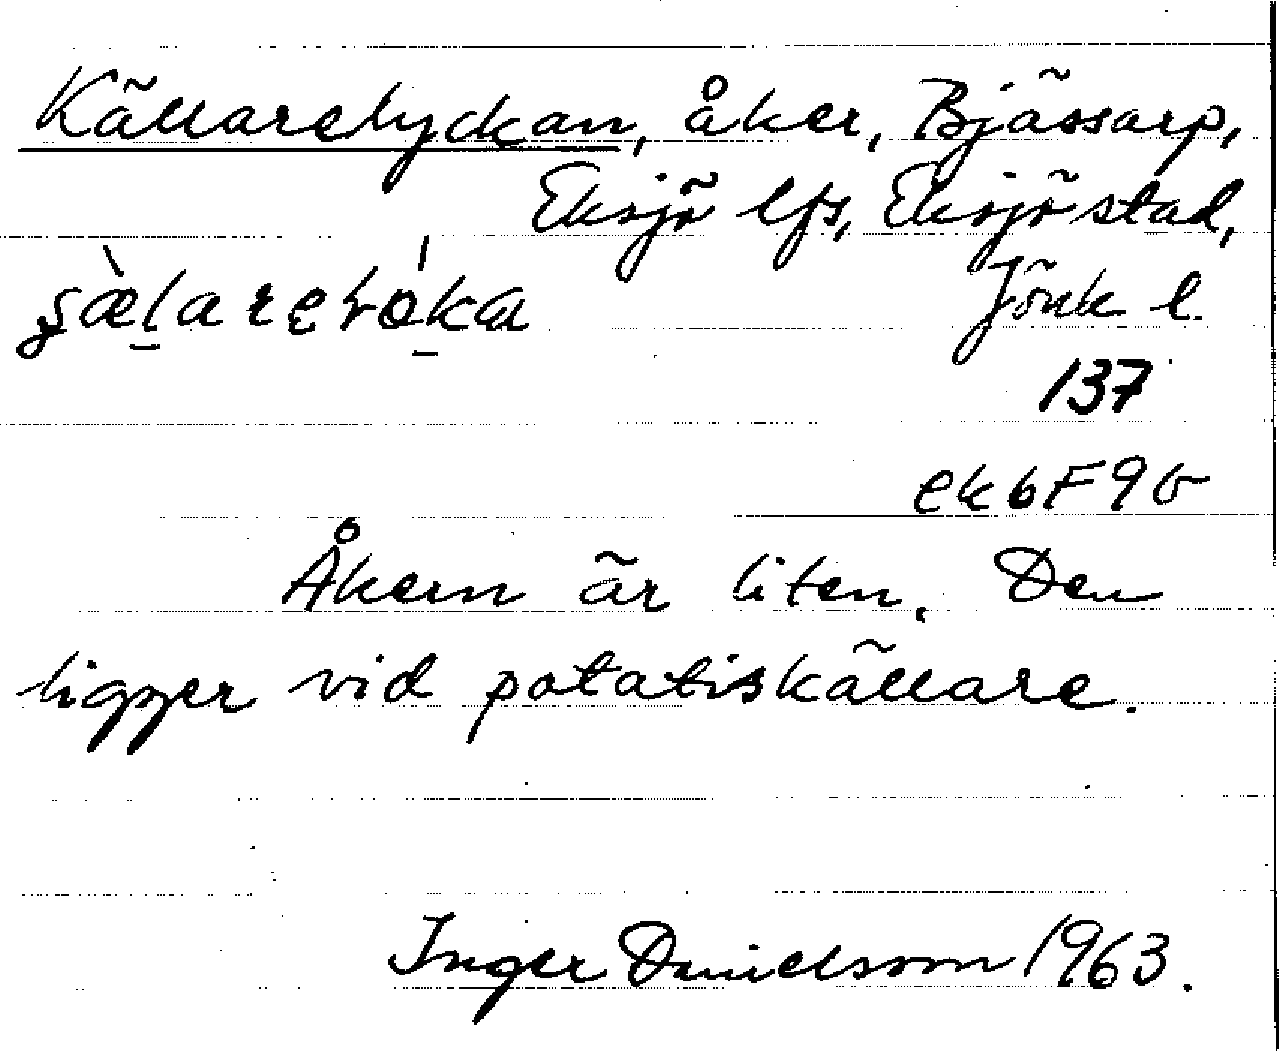 Källarelyckan, åker, Bjässarp,
Eksjö lfs, Eksjö stad,
Jönk l.
137
ek 6F9b
Åkern är liten. Den
ligger vid potatiskällare.
Inger Danielsson 1963.